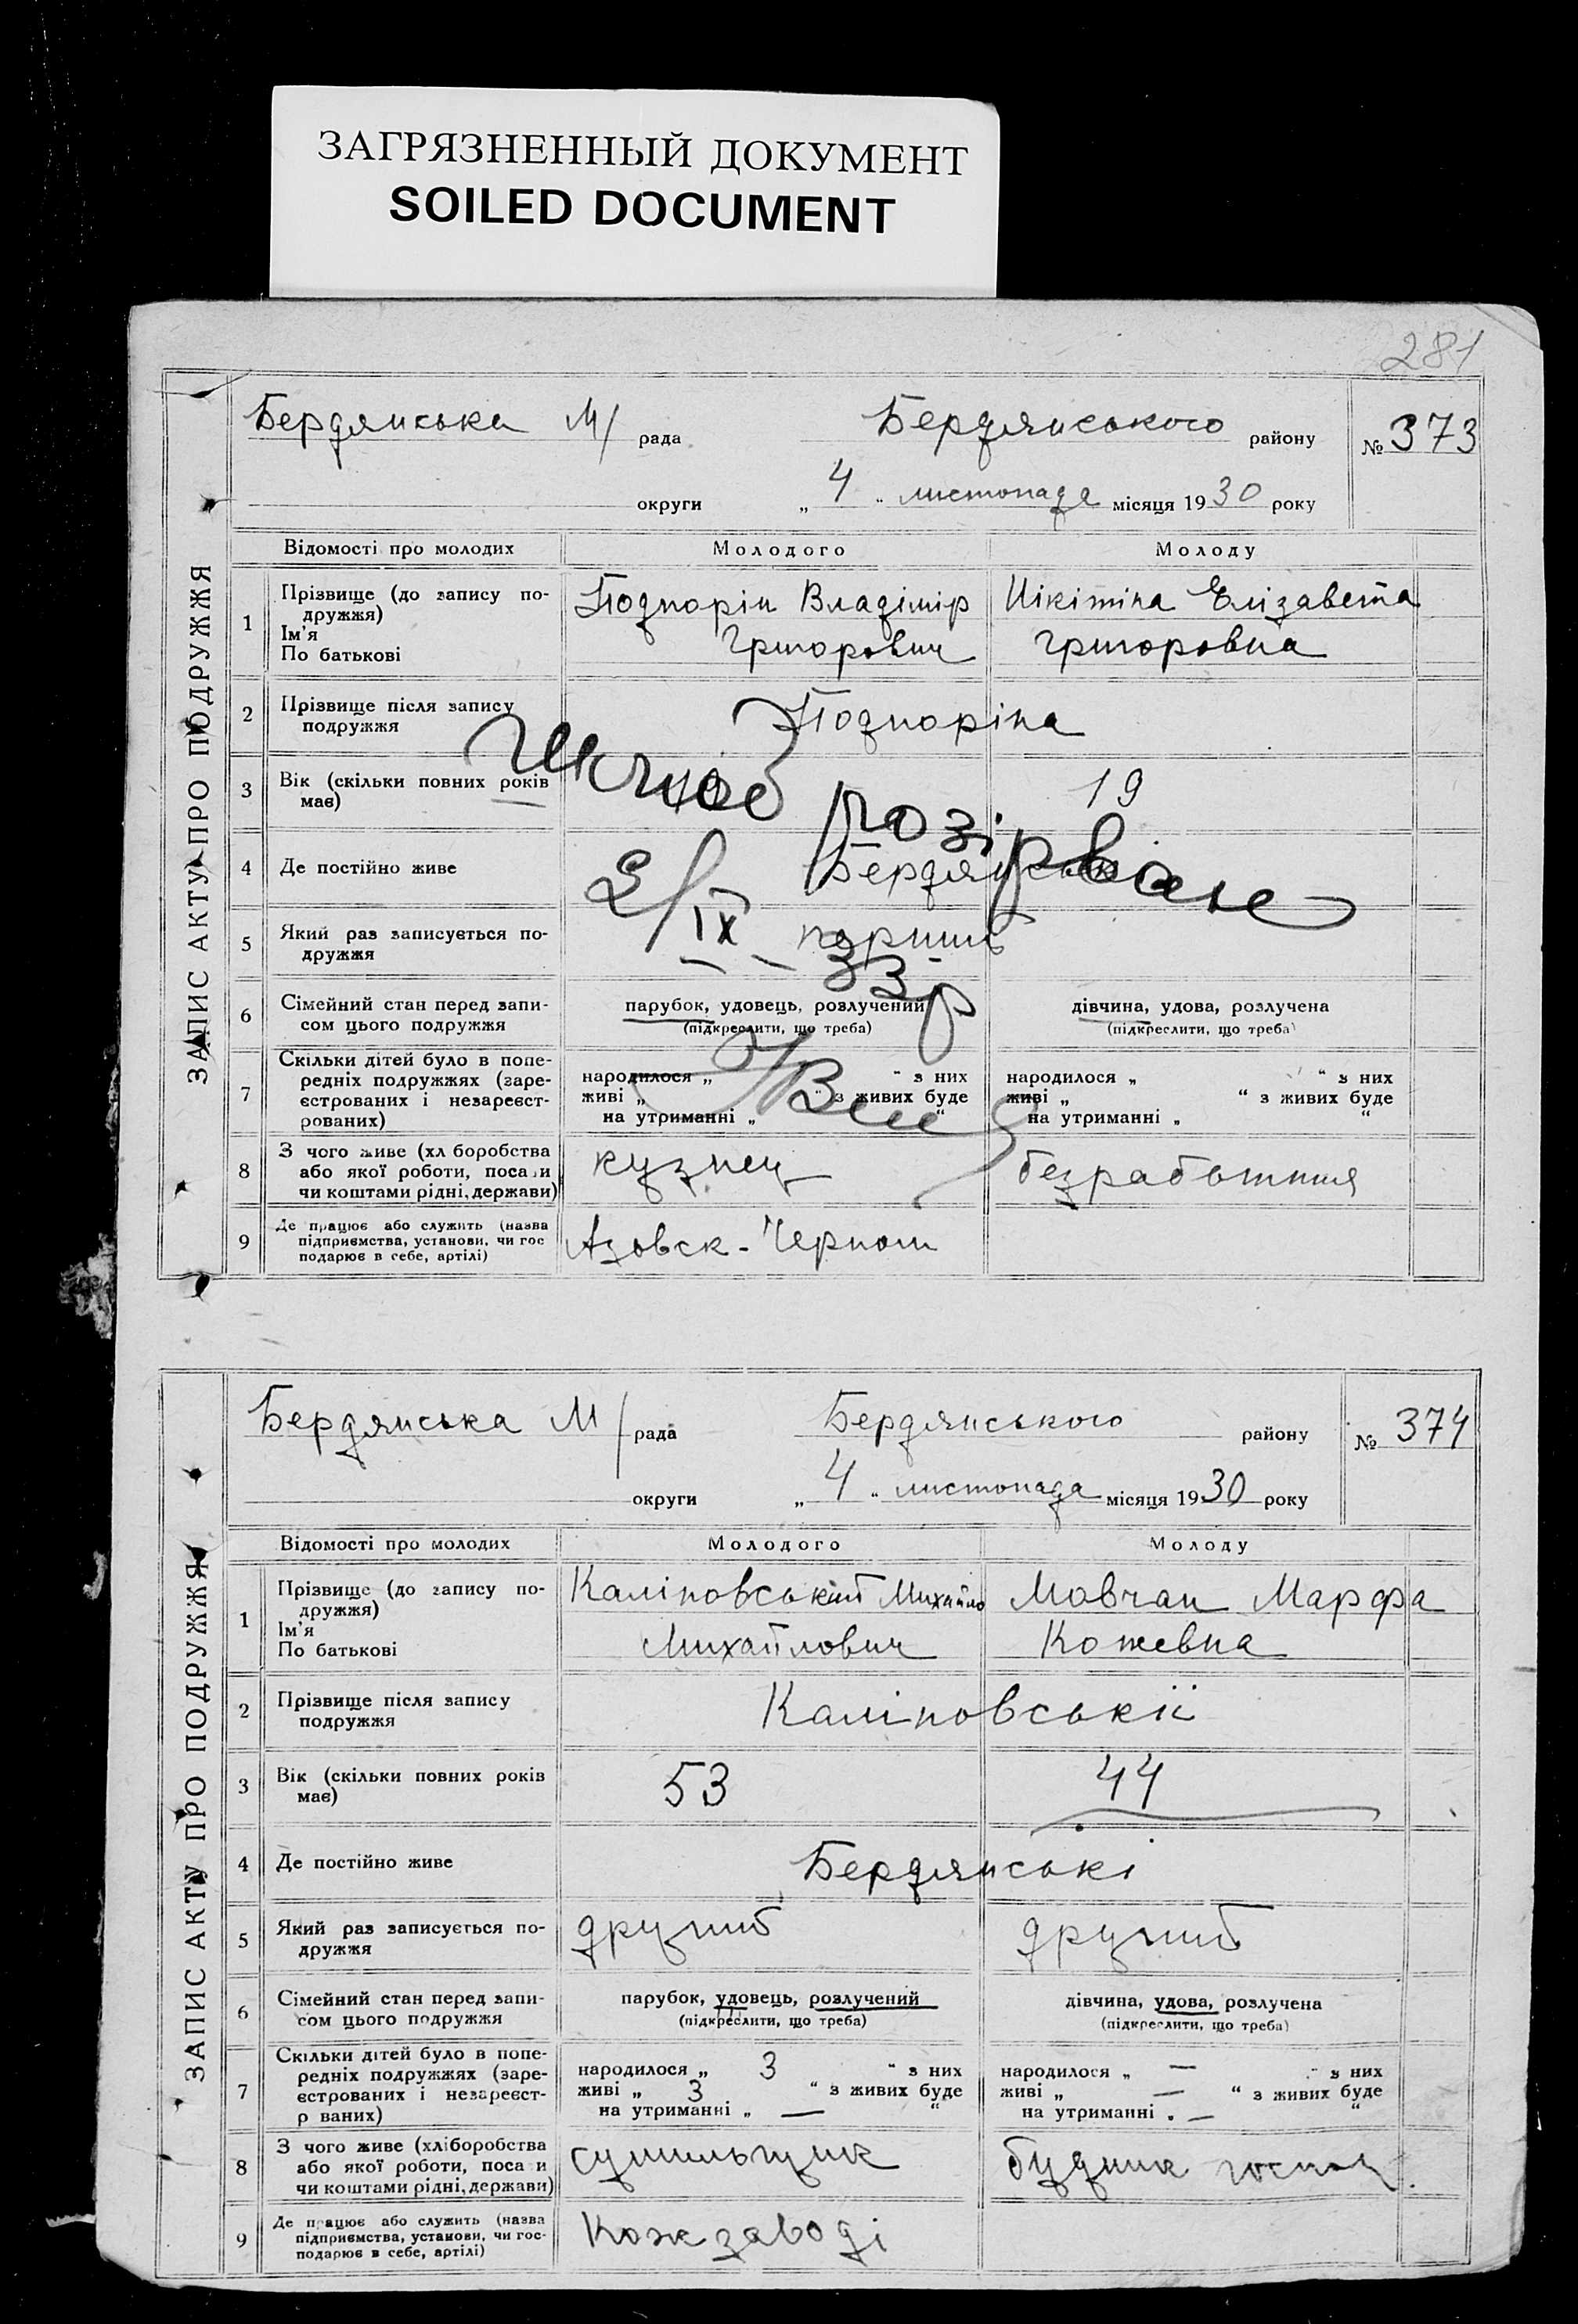 ЗАГРЯЗНЕННЫЙ ДОКУМЕНТ
SOILED DOCUMENT
281
ЗАПИС АКТУ ПРО ПОДРУЖЖЯ
Бердянська М/ рада Бердянського району № 373
округи „ 4 “ листопада місяця 1930 року
Відомості про молодих Молодого Молоду
1 Прізвище (до запису подружжя) Ім'я По батькові
Подпорін Владімір Нікітіна Єлізавета
Григорович Григоровна
2 Прізвище після запису подружжя Подпоріна
3 Вік (скільки повних років має) 19
4 Де постійно живе Бердянськ
5 Який раз записується подружжя перший
Шлюб розірване
2/IX - 33 р
6 Сімейний стан перед записом цього подружжя парубок, удовець, розлучений дівчина, удова, розлучена
(підкреслити, що треба) (підкреслити, що треба)
7 Скільки дітей було в попередніх подружжях (зареєстрованих і незареєстрованих)
народилося „ “ з них народилося „ “ з них
живі „ “ з живих буде живі „ “ з живих буде
на утриманні „ “ на утриманні „ “
8 З чого живе (хл боробства або якої роботи, посади чи коштами рідні, держави) кузнец безработння
9 Де працює або служить (назва підприємства, установи, чи гос подарює в себе, артілі) Азовск-Черном
ЗАПИС АКТУ ПРО ПОДРУЖЖЯ
Бердянська М/ рада Бердянського району № 374
округи „ 4 “ листопада місяця 1930 року
Відомості про молодих Молодого Молоду
1 Прізвище (до запису подружжя) Ім'я По батькові
Каліновський Михайло Мовчан Марфа
Михайлович
2 Прізвище після запису подружжя Каліновскіі
3 Вік (скільки повних років має) 53 44
4 Де постійно живе Бердянські
5 Який раз записується подружжя другий другий
6 Сімейний стан перед записом цього подружжя парубок, удовець, розлучений дівчина, удова, розлучена
(підкреслити, що треба) (підкреслити, що треба)
7 Скільки дітей було в попередніх подружжях (зареєстрованих і незареєстр ваних)
народилося „ 3 “ з них народилося „ — “ з них
живі „ 3 “ з живих буде живі „ — “ з живих буде
на утриманні „ — “ на утриманні „ — “
8 З чого живе (хліборобства або якої роботи, поса и чи коштами рідні, держави) сушильщик будник господ.
9 Де працює або служить (назва підприємства, установи, чи господарює в себе, артілі) Кожзаводі